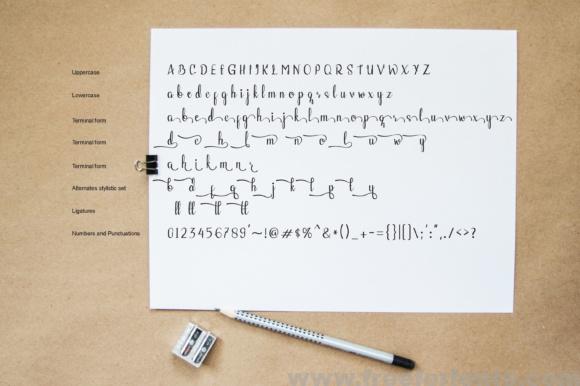 Uppercase A B C D E F G H I J K L M N O P Q R S T U V W X Y Z
Lowercase a b c d e f g h i j k l m n o p q r s t u v w x y z
Terminal form a b c d e f g h i j k l m n o p q r s t u v w x y z
Terminal form d e h l m n o t u w y
Terminal form a h i k m n r
Alternates stylistic set b d f g h j k l p t y
Ligatures ll ll tt tt
Numbers and Punctuations 0123456789'~!@#$%^&*()_+-={}|[]\;':",./<>?